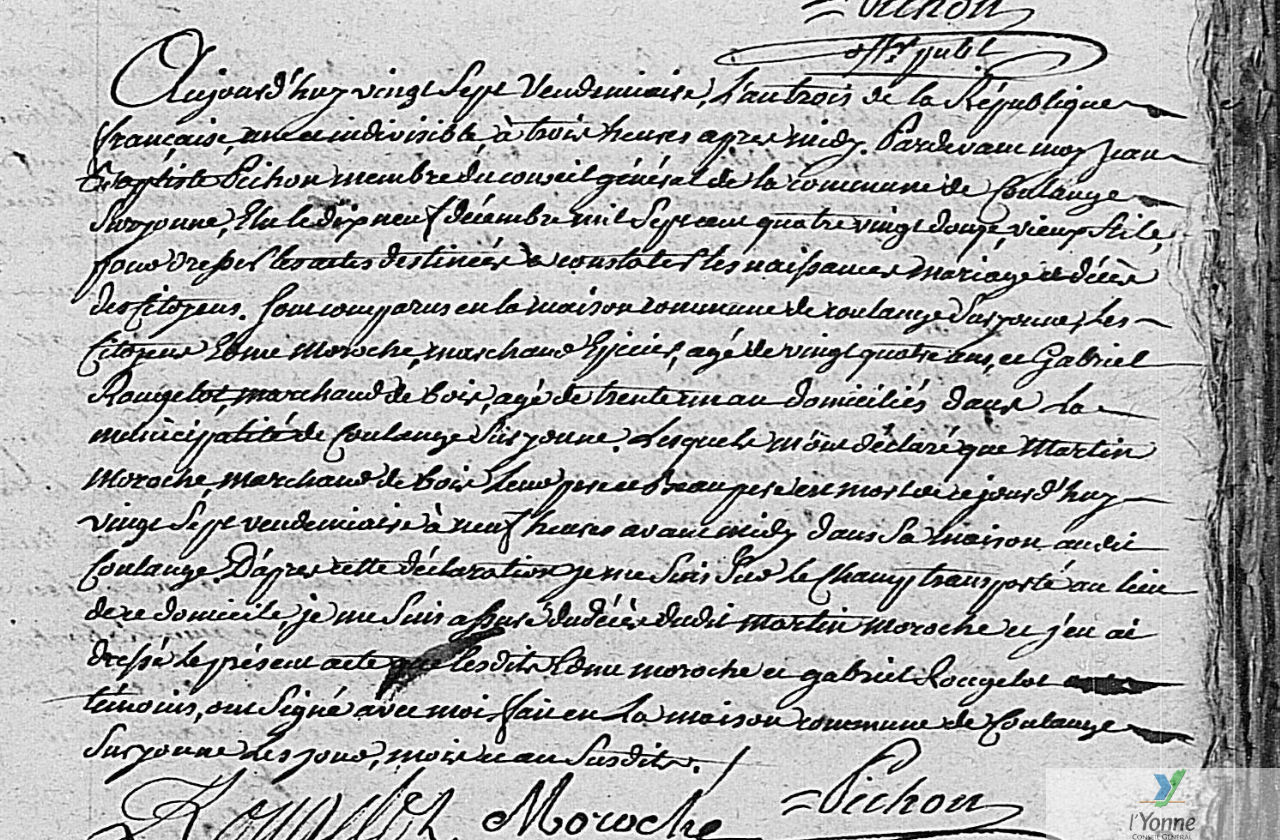 Pichon
offr publ
Aujourd'huy vingt Sept Vendemiaire, L'an trois de la République
française, une et indivisible à trois heures apres midy. Pardevant moy Jean
Baptiste Pichon membre du conseil général de la commune de Coulange
Sur yonne, Elu le dix neuf décembre mil Sept cent quatre vingt douze, vieux Stile,
pour dresser les actes destinées a constater les naissances mariage et décès
des Citoyens. Sont comparus en la maison commune de coulange Sur yonne, Les
Citoyens Edme Moroche, marchand Epicier, agé de vingt quatre ans, et Gabriel
Rougelot, marchand de bois, agé de trente un an domiciliés dans La
municipalité de Coulange Sur yonne. Lesquels m'ont déclaré que Martin
Moroche, marchand de bois Leur pere et Beau pere est mort ce jourd'huy
vingt Sept vendemiaire à neuf heures avant midy dans Sa maison audit
Coulange. D'après cette déclaration je me Suis Sur le Champ transporté au lieu
de ce domicile, je me Suis assuré du décès dudit Martin Moroche et j'en ai
dressé le présent acte que lesdits Edme moroche et gabriel Rougelot
témoins, ont Signé avec moi. fait en La maison commune de Coulange
Sur yonne Les jour, mois et an Susdits.
Rougelot Moroche Pichon
l'Yonne
CONSEIL GÉNÉRAL